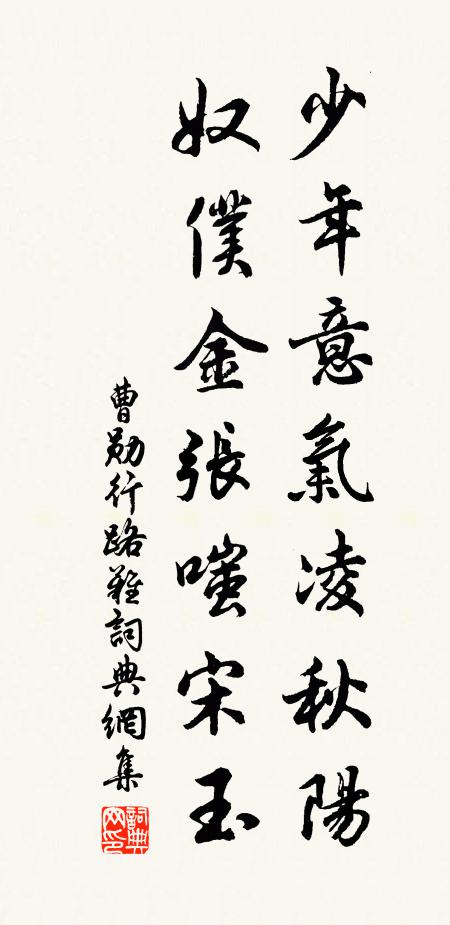 少年意氣凌秋陽
奴僕金張嗤宋玉
曹勛行路難詞典網集
詞典網印